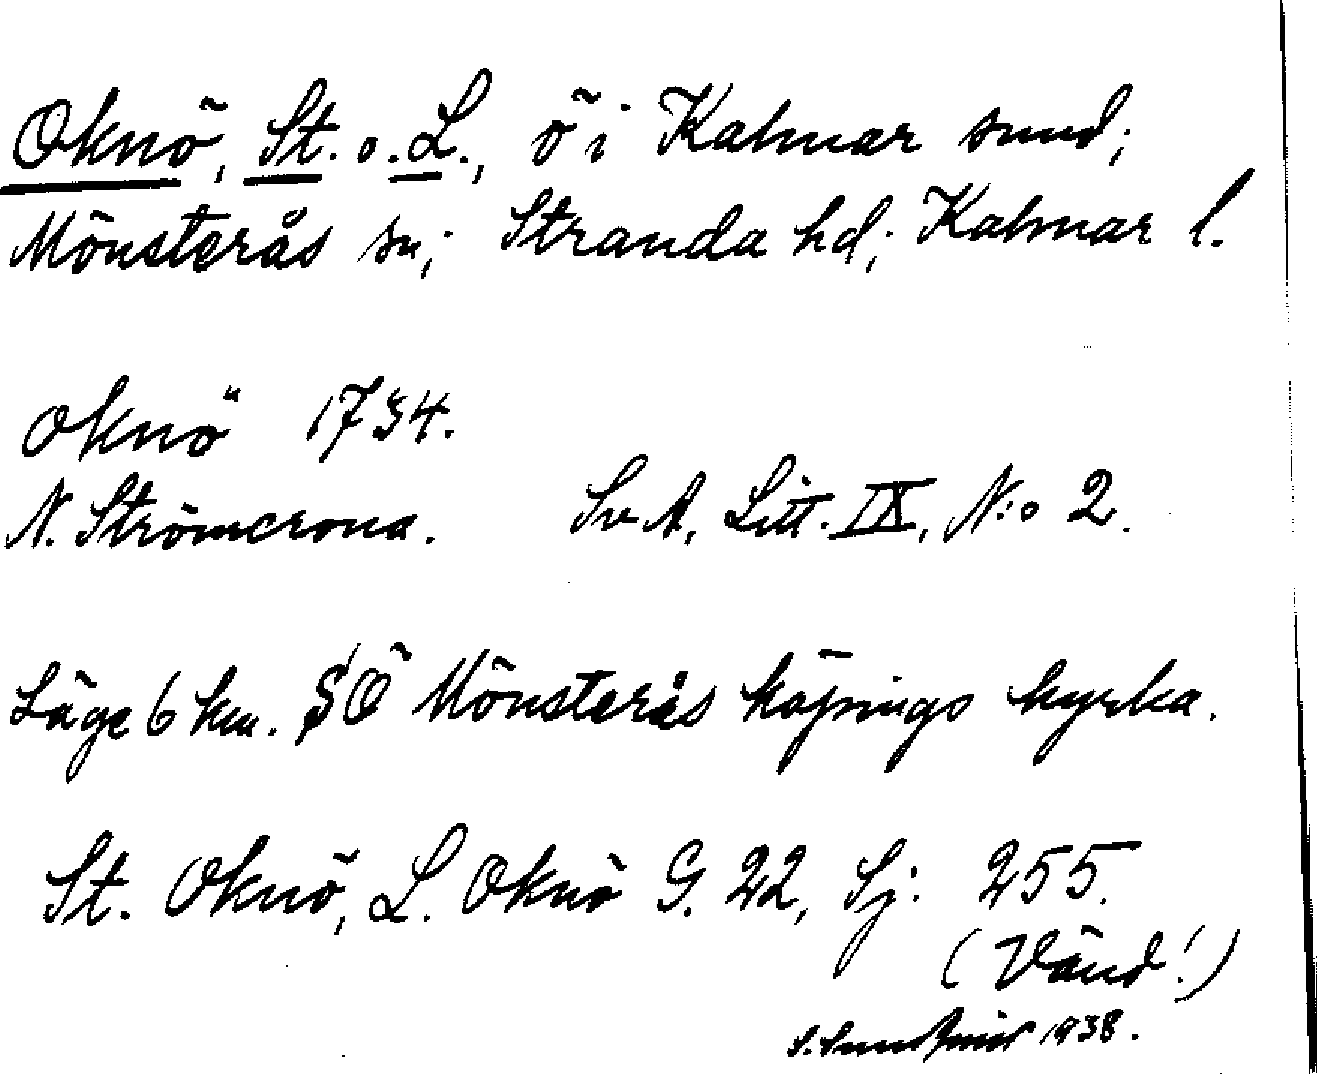 Oknö, St. o. L., ö i Kalmar sund;
Mönsterås sn; Stranda hd; Kalmar l.
Oknö 1734.
N. Strömcrona. SvA, Litt. IX, N:o 2.
Läge 6 km. SÖ Mönsterås köpings kyrka.
St. Oknö, L. Oknö G. 22, Sj. 255.
(Vänd!)
S. 1938.